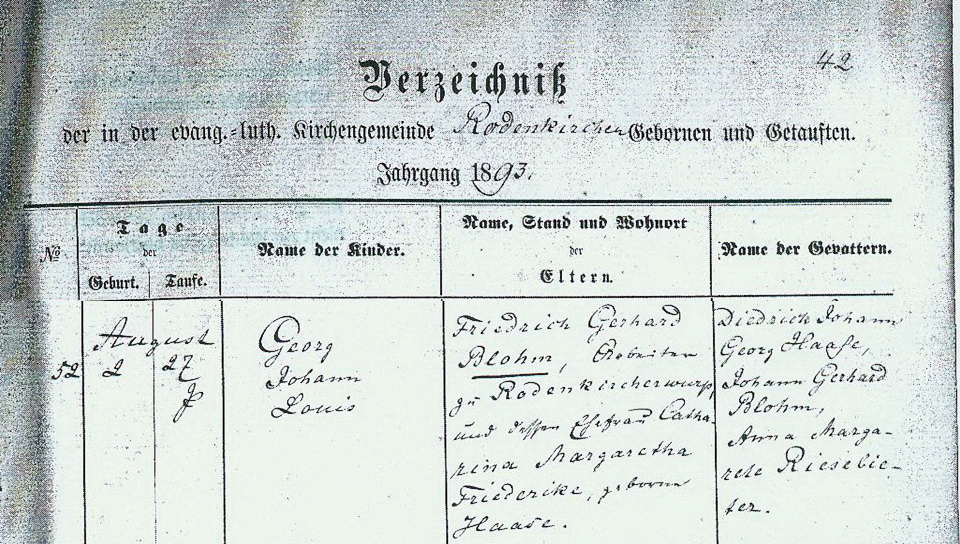 42
Verzeichniß
der in der evang.-luth. Kirchengemeinde Rodenkirchen Gebornen und Getauften.
Jahrgang 1893.
№
Tage
der
Geburt. Taufe.
Name der Kinder.
Name, Stand und Wohnort
der
Eltern.
Name der Gevattern.
52
August
2 27
Georg
Johann
Louis
Friedrich Gerhard
Blohm, Arbeiter
zu Rodenkircherwurp,
und dessen Ehefrau Catha-
rina Margaretha
Friederike, geborne
Haase.
Diedrich Johann
Georg Haase,
Johann Gerhard
Blohm,
Anna Marga-
rete Riesebie-
ter.